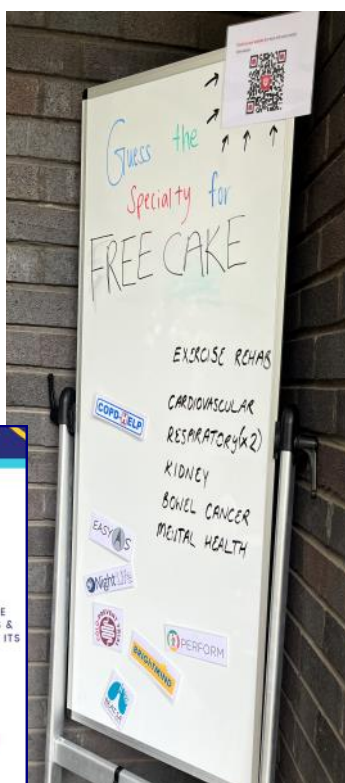 Guess the
Specialty for
FREE CAKE
EXERCISE REHAB
CARDIOVASCULAR
RESPIRATORY (x2)
KIDNEY
BOWEL CANCER
MENTAL HEALTH
COPD-HELP
EASY AS
NightLife
PERFORM
BRIGHTMIND
& 
ITS